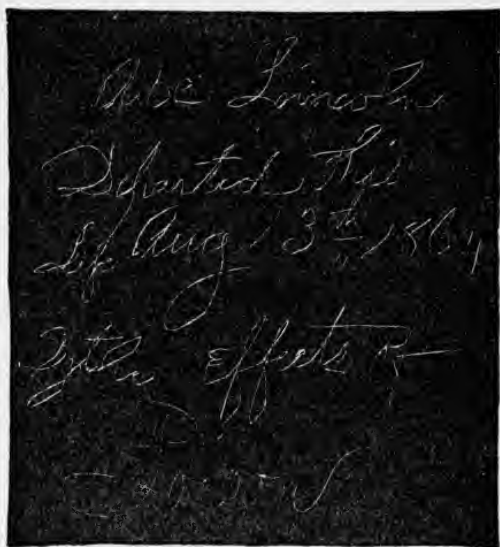 Abe Lincoln
Departed This
Life Aug 13th 1864
By the effects of